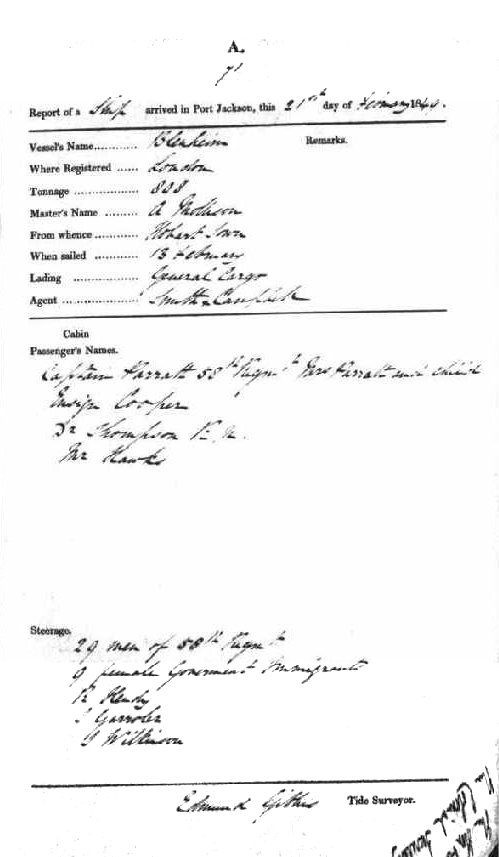 A.
71
Report of a Ship arrived in Port Jackson, this 21st day of February 184
Vessel's Name............ Blenheim Remarks.
Where Registered ...... London
Tonnage .................. 808
Master's Name ......... A Mollison
From whence............ Hobart Town
When sailed ............. 13 February
Lading .................. General Cargo
Agent ..................... Smith & Campbell
Cabin
Passenger's Names.
Captain 58th Regmt Mrs and child
Ensign Cooper
Dr Thompson R. N.
Mr Hawks
Steerage.
29 men of 58th Regmt
9 female Goverment Immigrants
R Hendy
J
J Wilkinson
Edmund Tide Surveyor.